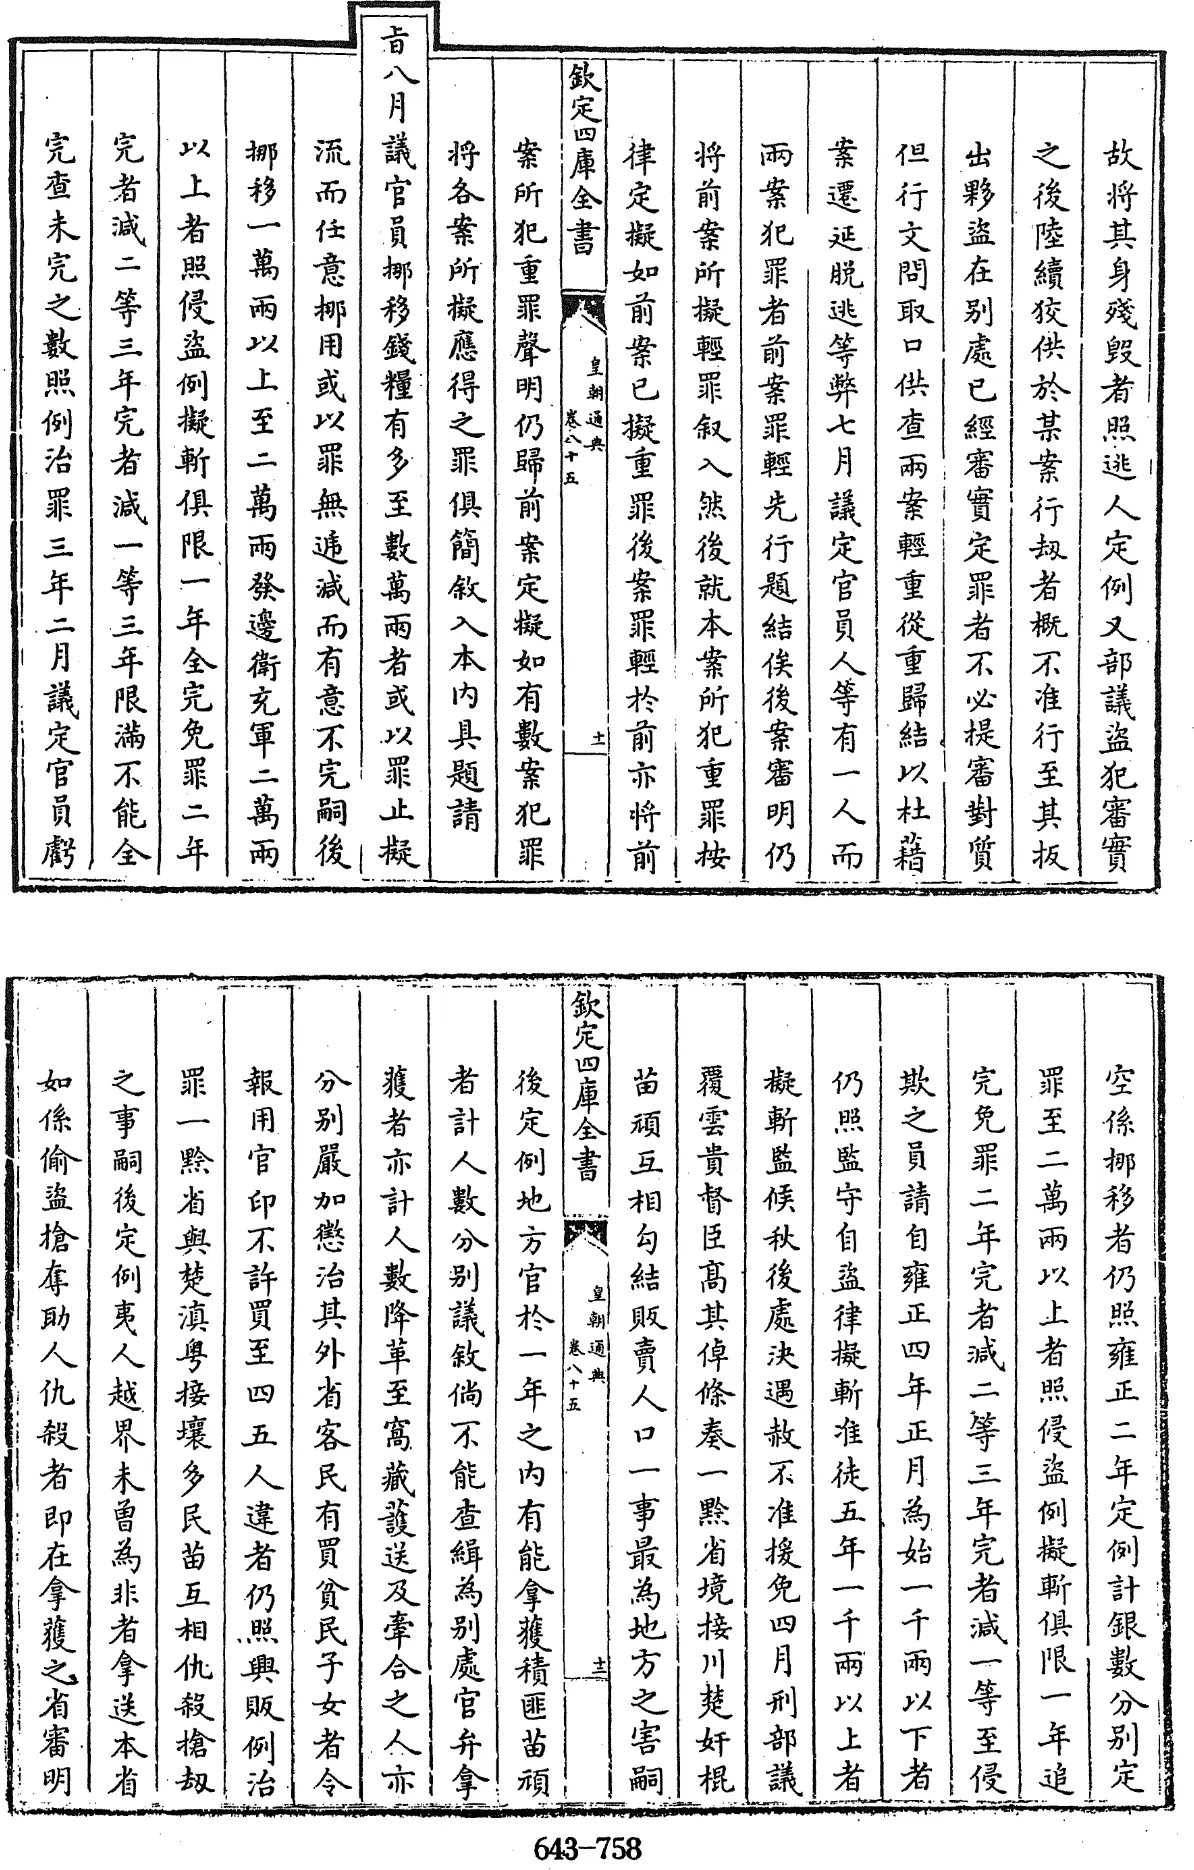 故將其身殘毀者照逃人定例又部議盜犯審實
之後陸續狡供於某案行刼者概不准行至其扳
出夥盜在别處已經審實定罪者不必提審對質
但行文問取口供查兩案輕重從重歸結以杜藉
案遷延脱逃等弊七月議定官員人等有一人而
兩案犯罪者前案罪輕先行題結俟後案審明仍
将前案所擬輕罪叙入然後就本案所犯重罪按
律定擬如前案已擬重罪後案罪輕於前亦将前
欽定四庫全書
皇朝通典
卷八十五
十一
案所犯重罪聲明仍歸前案定擬如有數案犯罪
将各案所擬應得之罪俱簡敘入本内具題請
旨八月議官員挪移錢糧有多至數萬兩者或以罪止擬
流而任意挪用或以罪無遞減而有意不完嗣後
挪移一萬兩以上至二萬兩發邊衛充軍二萬兩
以上者照侵盜例擬斬俱限一年全完免罪二年
完者減二等三年完者減一等三年限滿不能全
完查未完之數照例治罪三年二月議定官員虧
空係挪移者仍照雍正二年定例計銀數分别定
罪至二萬兩以上者照侵盜例擬斬俱限一年追
完免罪二年完者減二等三年完者減一等至侵
欺之員請自雍正四年正月為始一千兩以下者
仍照監守自盜律擬斬准徒五年一千兩以上者
擬斬監候秋後處決遇赦不准援免四月刑部議
覆雲貴督臣髙其倬條奏一黔省境接川楚奸棍
苗頑互相勾結販賣人口一事最為地方之害嗣
欽定四庫全書
皇朝通典
卷八十五
十二
後定例地方官於一年之内有能拿獲積匪苗頑
者計人數分别議敘倘不能查緝為别處官弁拿
獲者亦計人數降革至窩藏護送及牽合之人亦
分别嚴加懲治其外省客民有買貧民子女者令
報用官印不許買至四五人違者仍照興販例治
罪一黔省與楚滇粤接壤多民苗互相仇殺搶刼
之事嗣後定例夷人越界未曽為非者拿送本省
如係偷盜搶奪助人仇殺者即在拿獲之省審明
643-758